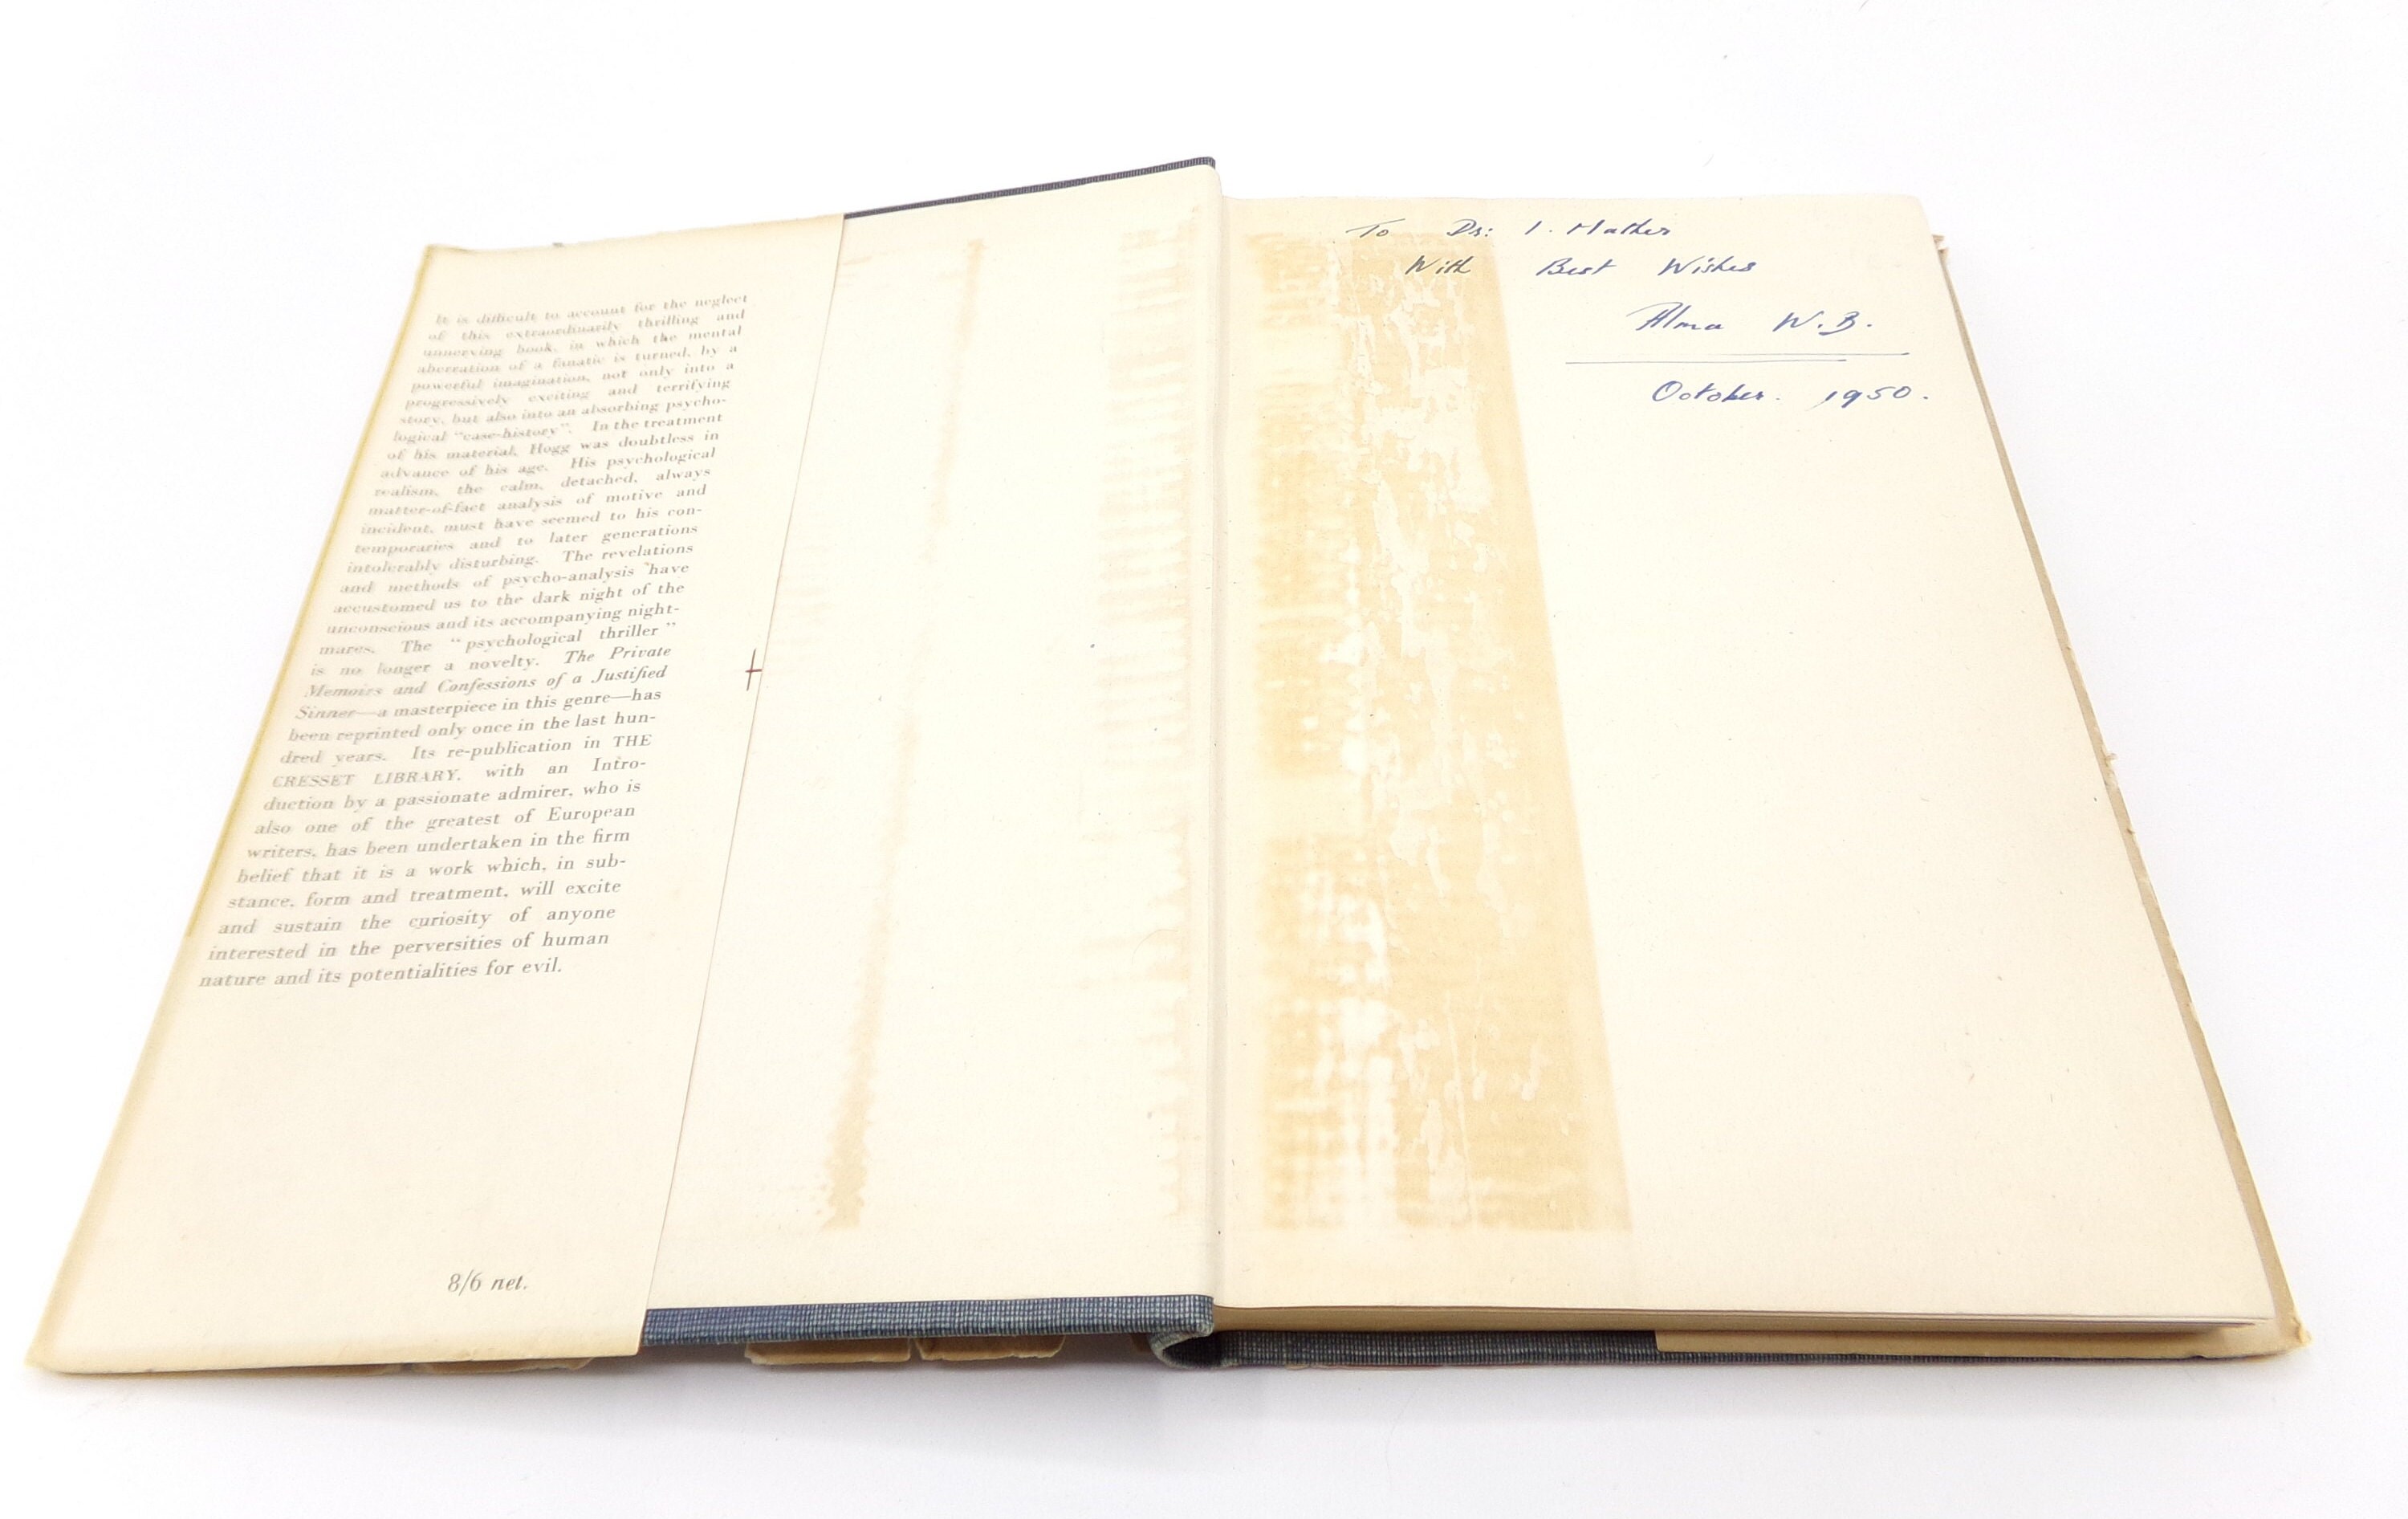 It is difficult to account for the neglect
of this extraordinarily thrilling and
unnerving book, in which the mental
aberration of a fanatic is turned, by a
powerful imagination, not only into a
progressively exciting and terrifying
story, but also into an absorbing psycho-
logical "case-history". In the treatment
of his material, Hogg was doubtless in
advance of his age. His psychological
realism, the calm, detached, always
matter-of-fact analysis of motive and
incident, must have seemed to his con-
temporaries and to later generations
intolerably disturbing. The revelations
and methods of psycho-analysis have
accustomed us to the dark night of the
unconscious and its accompanying night-
mares. The "psychological thriller"
is no longer a novelty. The Private
Memoirs and Confessions of a Justified
Sinner—a masterpiece in this genre—has
been reprinted only once in the last hun-
dred years. Its re-publication in THE
CRESSET LIBRARY, with an Intro-
duction by a passionate admirer, who is
also one of the greatest of European
writers, has been undertaken in the firm
belief that it is a work which, in sub-
stance, form and treatment, will excite
and sustain the curiosity of anyone
interested in the perversities of human
nature and its potentialities for evil.
8/6 net.
To Dr: I. Mather
With Best Wishes
Alma W.B.
October. 1950.